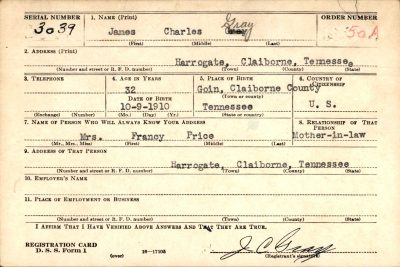 SERIAL NUMBER 1. NAME (Print) ORDER NUMBER
3039 James Charles Gray 50A
(First) (Middle) (Last)
2. ADDRESS (Print)
Harrogate, Claiborne, Tennessee
(Number and street or R. F. D. number) (Town) (County) (State)
3. TELEPHONE 4. AGE IN YEARS 5. PLACE OF BIRTH 6. COUNTRY OF CITIZENSHIP
32 Goin, Claiborne County
DATE OF BIRTH (Town or county)
10-9-1910 Tennessee U. S.
(Exchange) (Number) (Mo.) (Day) (Yr.) (State or country)
7. NAME OF PERSON WHO WILL ALWAYS KNOW YOUR ADDRESS 8. RELATIONSHIP OF THAT PERSON
Mrs. Francy Price Mother-in-law
(Mr., Mrs., Miss) (First) (Middle) (Last)
9. ADDRESS OF THAT PERSON
Harrogate, Claiborne, Tennessee
(Number and street or R. F. D. number) (Town) (County) (State)
10. EMPLOYER'S NAME
11. PLACE OF EMPLOYMENT OR BUSINESS
(Number and street or R. F. D. number) (Town) (County) (State)
I AFFIRM THAT I HAVE VERIFIED ABOVE ANSWERS AND THAT THEY ARE TRUE.
REGISTRATION CARD
D. S. S. Form 1 (over) 16—17105 J. C. Gray
(Registrant's signature)